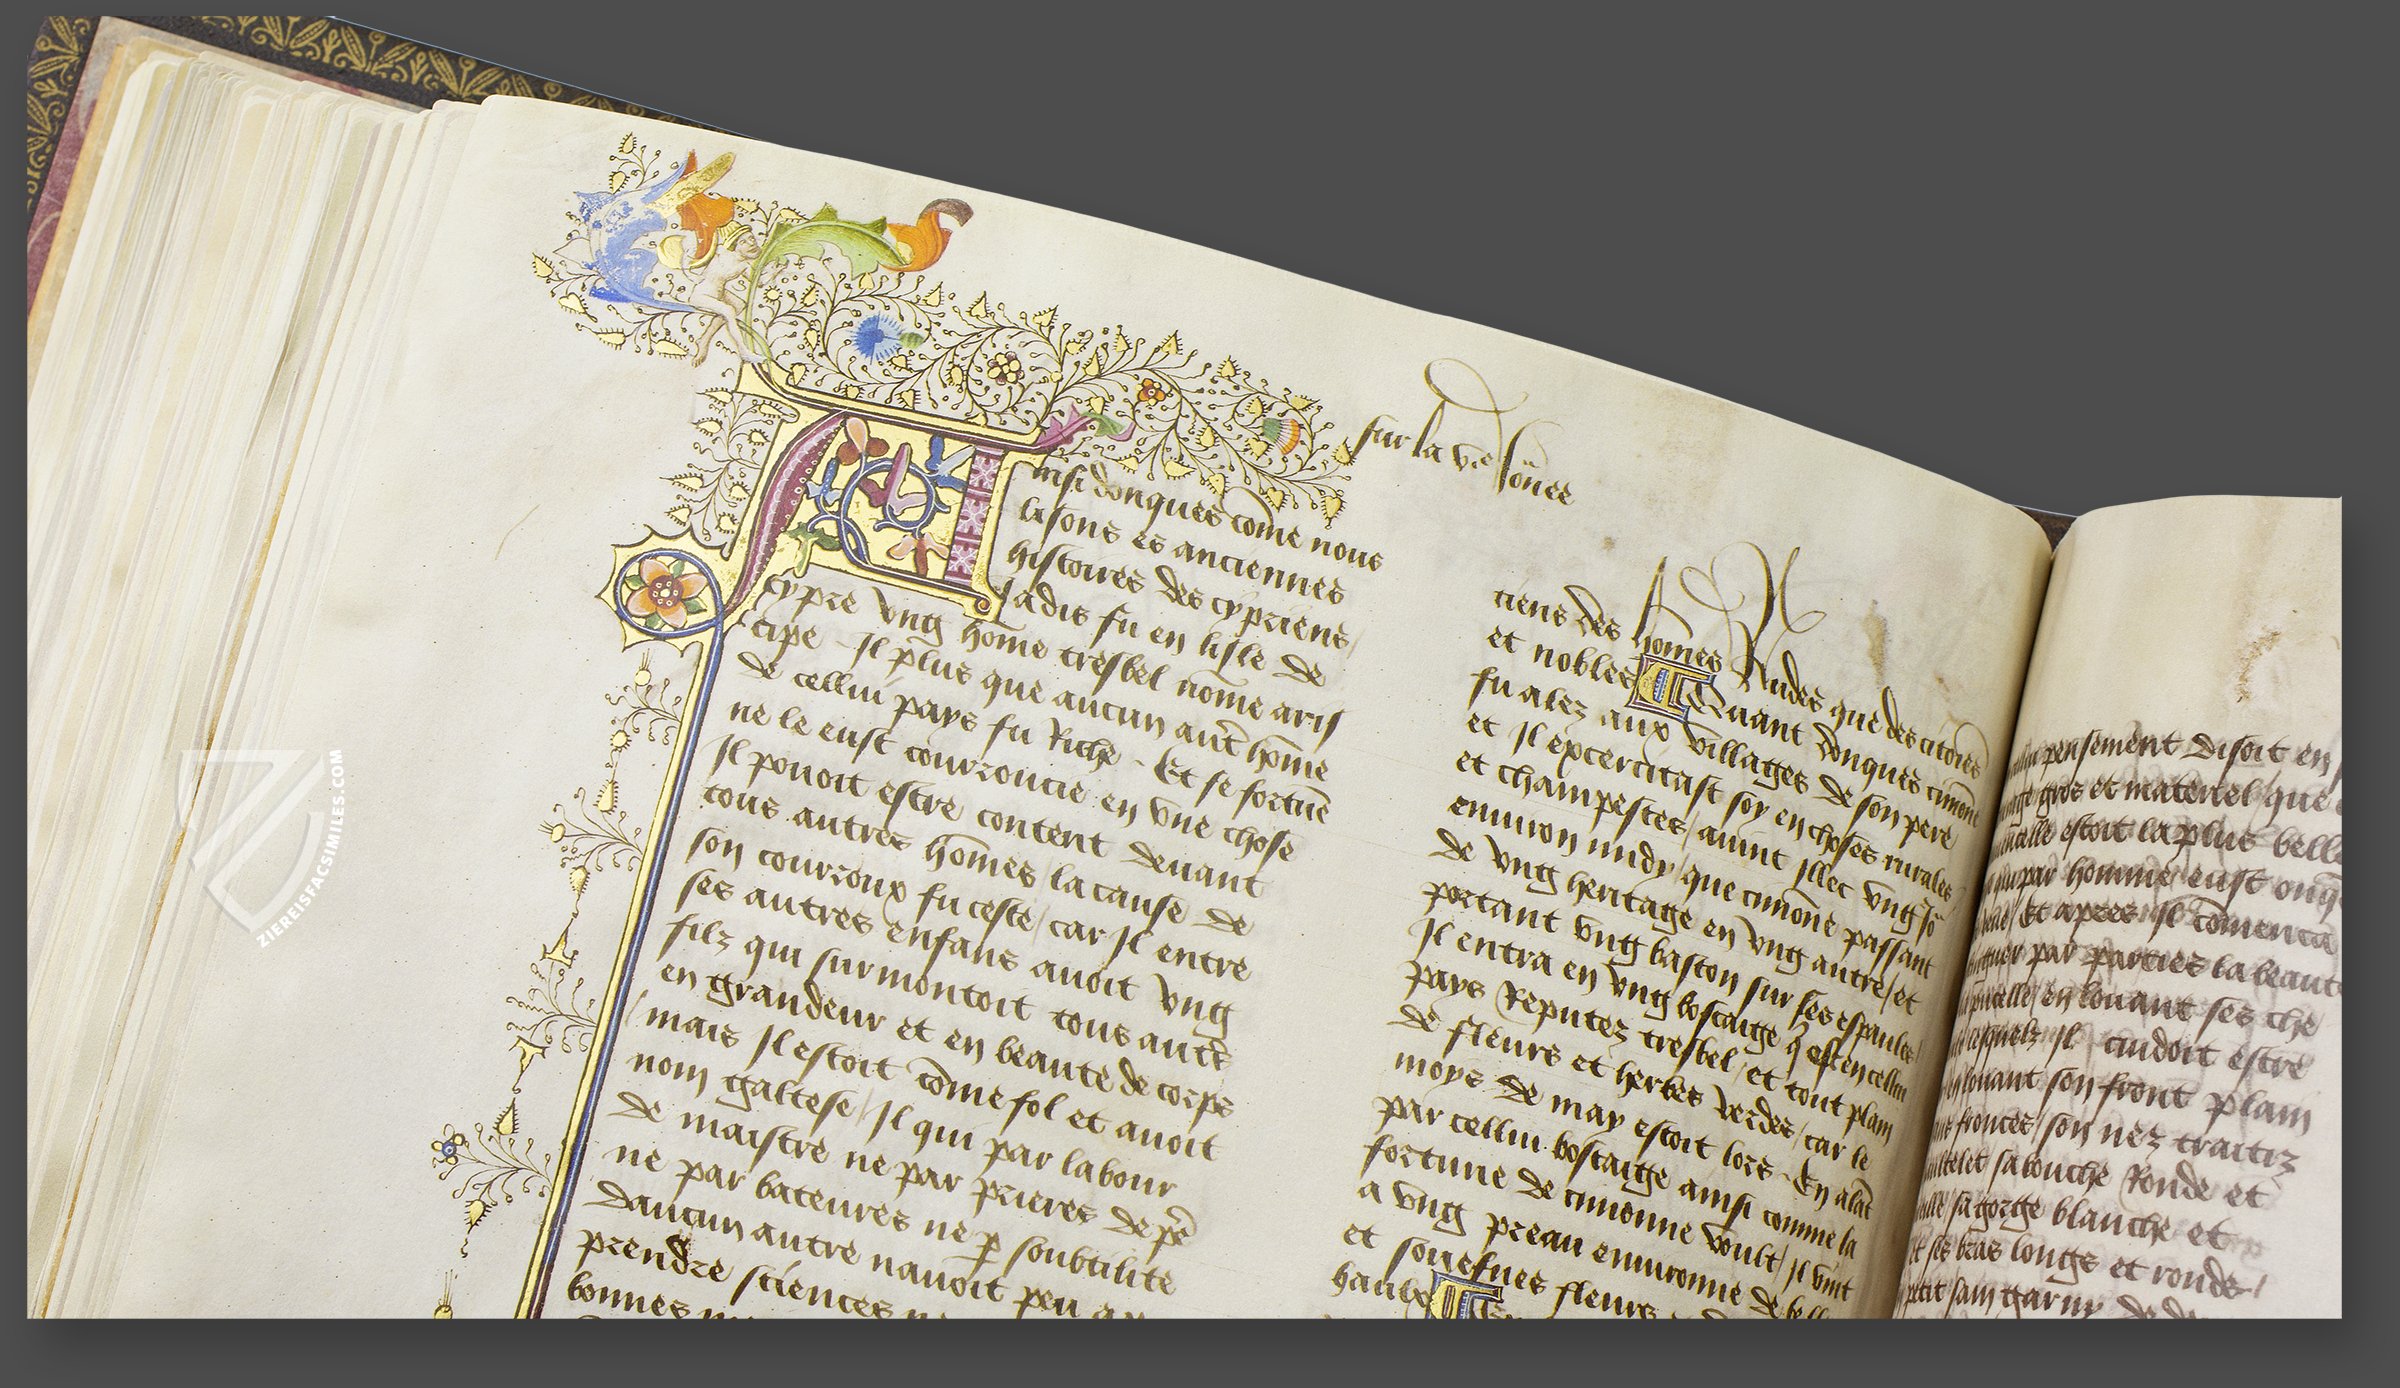 sur la vie Jouee
Ainsi donques cõme nous
lisons es anciennes
histoires des cypriens /
Jadis fu en lisle de
cypre vng hõme tresbel nõme aris
tipe - Jl plus que aucun autr̃ hõme
de cellui pays fu Riche - Et se fortũe
ne le eust courroucie en vne chose
Jl pouoit estre content deuant
tous autres hõmes / la cause de
son courroux fu ceste / car Jl entre
ses autres enfans auoit vng
filz qui surmontoit tous autr̃s
en grandeur et en beaute de corps
/ mais Jl estoit cõme fol et auoit
nom galtese / Jl qui par labour
de maistre ne par prieres de pẽ
ne par bateures ne p̱ soubtilite
daucun autre nauoit peu
prendre sciences ne
bonnes
ciens des hõmes Rudes que des citoiẽs
et nobles Quant donques cimõne
fu alez aux villages de son pere
et Jl excercitast soy en choses rurales
et champestes / auint Jllec vng Jõ
enuiron midy / que cimone passant
de vng heritage en vng autre / et
portant vng baston sur ses espaules /
Jl entra en vng boscaige q̃ est en cellui
pays Reputez tresbel / et tout plain
de fleurs et herbes verdes / car le
moys de may estoit lors - En alãt
par cellui boscaige ainsi comme la
fortune de cimonne voult / Jl vint
a vng preau enuironne de bell
et souefues fleurs
haulx
pensement disoit en
gros et materiel / que
estoit la plus belle
par homme eust onq̃
Et apres Jl cõmenca
par parties la beaute
pucelle / en louant ses che
lesquelz Jl cuidoit estre
louant son front plain
fronces / son nez traitiz
sa bouche Ronde et
sa gorge blanche et
ses bras longs et rondz /
petit sain garny de
ZIEREISFACSIMILES.COM